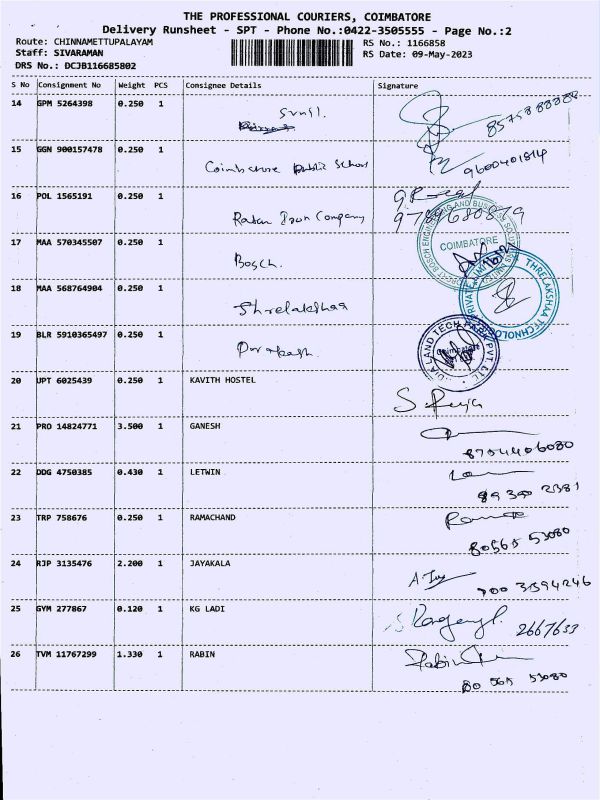 THE PROFESSIONAL COURIERS, COIMBATORE
Delivery Runsheet - SPT - Phone No.:0422-3505555 - Page No.:2
Route: CHINNAMETTUPALAYAM
RS No.: 1166858
Staff: SIVARAMAN
RS Date: 09-May-2023
DRS No.: DCJB116685802
S No Consignment No Weight PCS Consignee Details Signature
14 GPM 5264398 0.250 1 Sunil.
8575888888
15 GGN 900157478 0.250 1 Coimbatore Public School
9600401814
16 POL 1565191 0.250 1 Ratan Iron Company
9789680819
17 MAA 570345507 0.250 1 Bosch.
COIMBATORE
18 MAA 568764904 0.250 1 Shrelakshaa
THRELAKSHAA TECHNOLOGY PRIVATE LIMITED
19 BLR 5910365497 0.250 1 Prakash.
INDIA LAND TECH PARK PVT. LTD.
Coimbatore
20 UPT 6025439 0.250 1 KAVITH HOSTEL
21 PRO 14824771 3.500 1 GANESH
8754406080
22 DDG 4750385 0.430 1 LETWIN
89 390 2381
23 TRP 758676 0.250 1 RAMACHAND
80565 53080
24 RJP 3135476 2.200 1 JAYAKALA
700 3594246
25 GYM 277867 0.120 1 KG LADI
2667633
26 TVM 11767299 1.330 1 RABIN
Rabin
80 565 53080